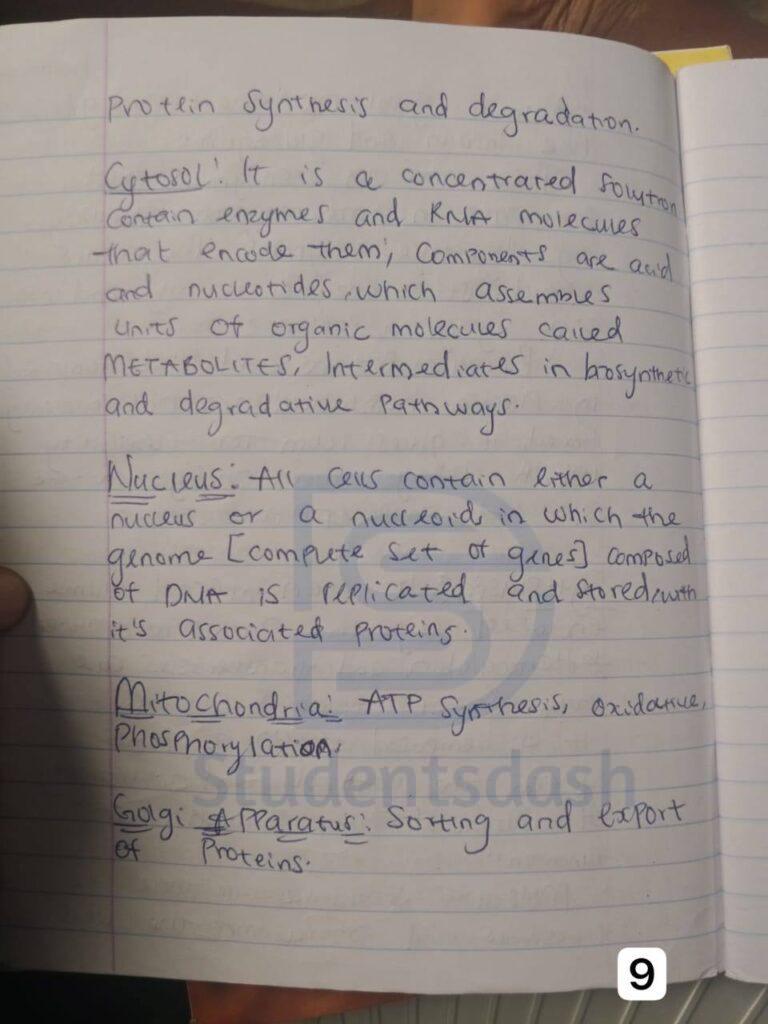 Protein Synthesis and degradation.
Cytosol: It is a concentrated solution
contain enzymes and RNA molecules
that encode them, Components are acid
and nucleotides, which assembles
units of organic molecules called
METABOLITES, Intermediates in biosynthetic
and degradative Pathways.
Nucleus: All cells contain either a
nucleus or a nucleoid, in which the
genome [complete set of genes] composed
of DNA is replicated and stored, with
it's associated proteins.
Mitochondria: ATP Synthesis, oxidative,
Phosphorylation.
Golgi Apparatus: Sorting and export
of Proteins.
Studentsdash
9